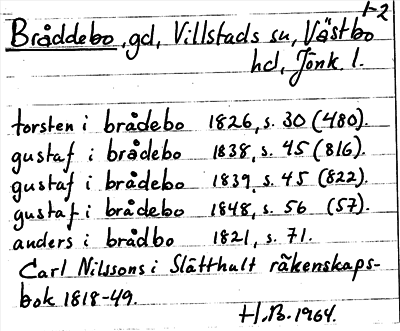 1-2
Bråddebo, gd, Villstads sn, Västbo
hd, Jönk. l.
torsten i brådebo 1826, s. 30 (480).
gustaf i brådebo 1838, s. 45 (816).
gustaf i brådebo 1839, s. 45 (822).
gustaf i brådebo 1848, s. 56 (57).
anders i brådbo 1821, s. 71.
Carl Nilssons i Slätthult räkenskaps-
bok 1818-49.
H.B. 1964.